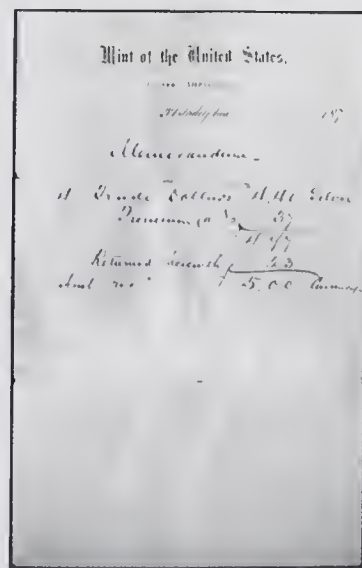 Mint of the United States,
Philadelphia 187
Memorandum
4 Trade Dollars 4.40 Silver
Premium 37
4.77
Returned herewith 23
Amt 5.00 Currency